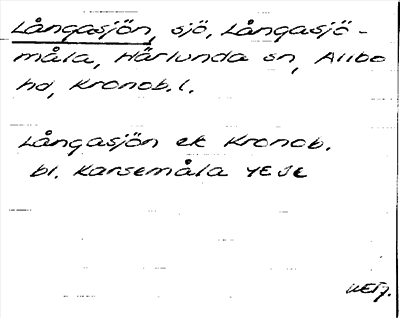 Långasjön, sjö, Långasjö-
måla, Härlunda sn, Allbo
hd, Kronob. l.
Långasjön ek Kronob.
bl. Karsemåla